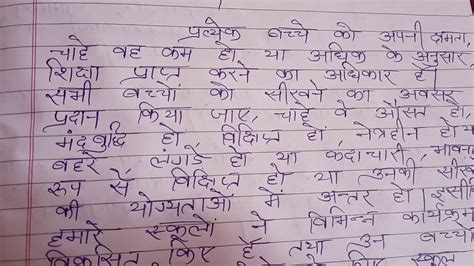 प्रत्येक बच्चे को अपनी क्षमता,
चाहे वह कम हो या अधिक के अनुसार,
शिक्षा प्राप्त करने का अधिकार है।
सभी बच्चों को सीखने का अवसर
प्रदान किया जाए, चाहे वे औसत हो,
मंदबुद्धि हो विक्षिप्त हो, नेत्रहीन हो
बहरे लगडे हो या कदाचारी,
रूप से विक्षिप्त हो या उनकी
की योग्यताओं में अन्तर हो।
हमारे स्कूलों ने विभिन्न
विकसित किए हैं तथा उन
लिए स्कूल